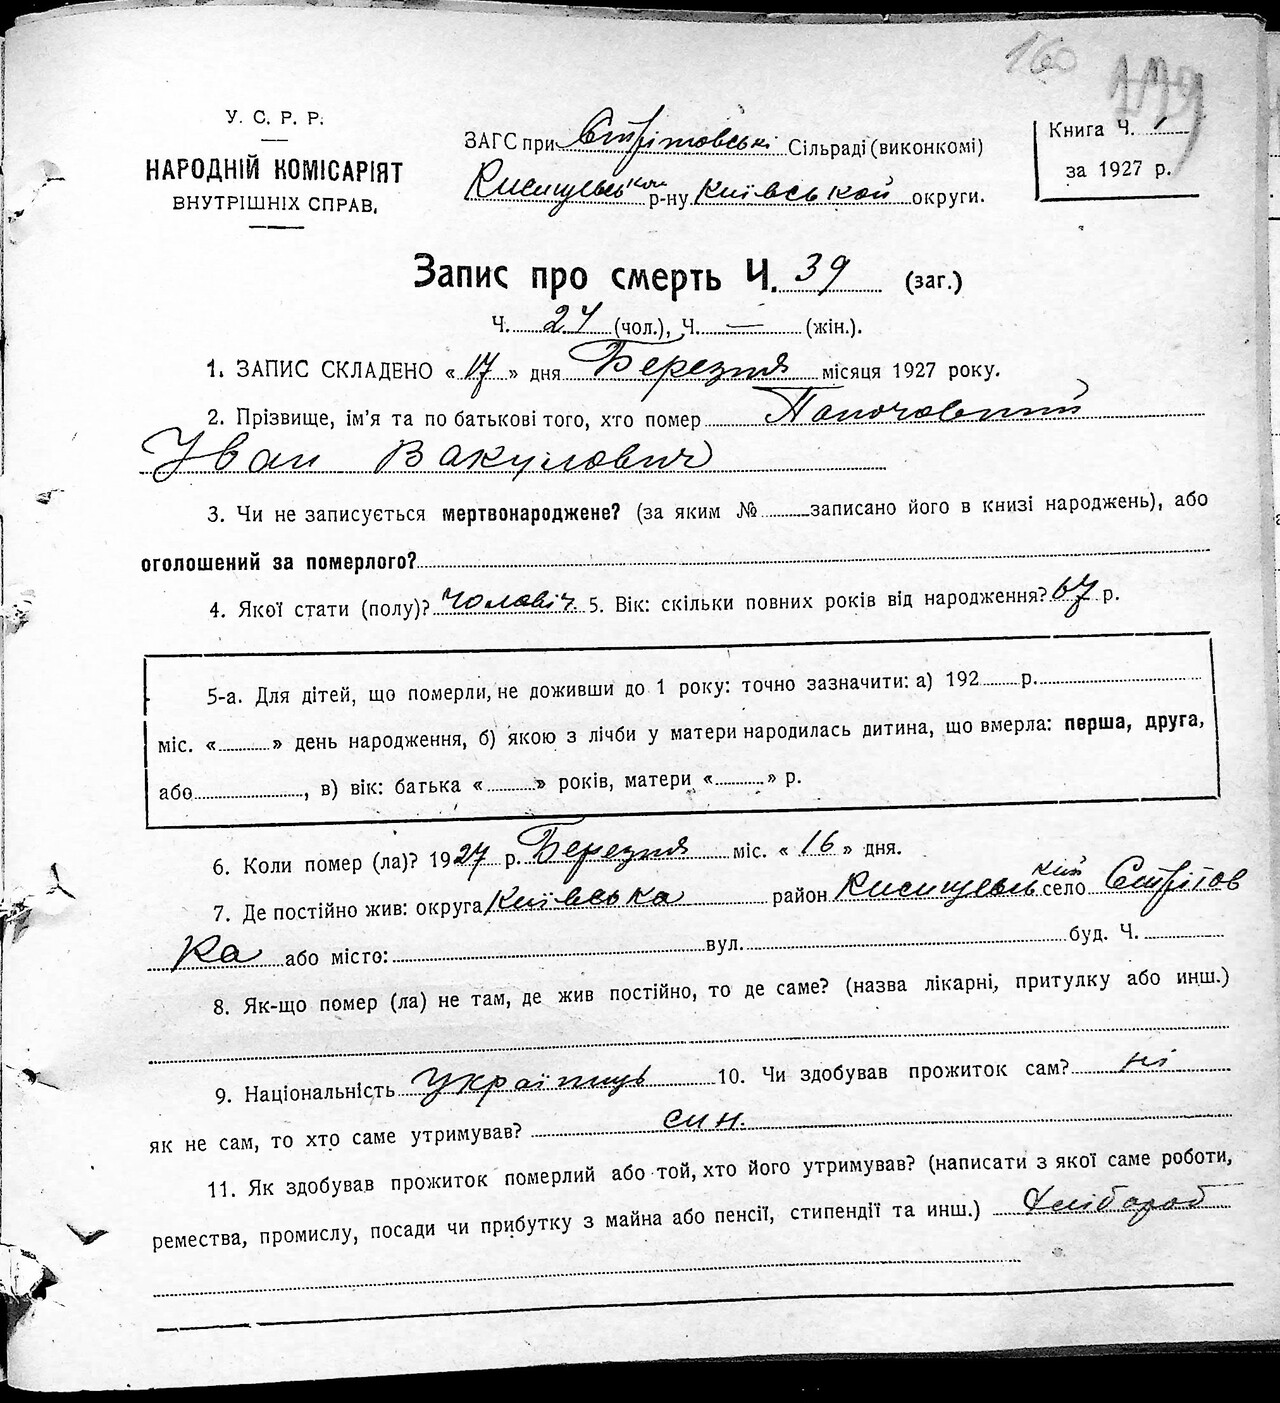 160
179
У. С. Р. Р.
НАРОДНІЙ КОМІСАРІЯТ
ВНУТРІШНІХ СПРАВ.
ЗАГС при Стрітовські Сільраді (виконкомі)
р-ну Київськой округи.
Книга Ч. 1
за 1927 р.
Запис про смерть Ч. 39 (заг.)
Ч. 24 (чол.), Ч. — (жін.).
1. ЗАПИС СКЛАДЕНО « 17 » дня Березня місяця 1927 року.
2. Прізвище, ім'я та по батькові того, хто помер
Іван Вакулович
3. Чи не записується мертвонароджене? (за яким № записано його в книзі народжень), або
оголошений за померлого?
4. Якої стати (полу)? чоловіч. 5. Вік: скільки повних років від народження? 67 р.
5-а. Для дітей, що померли, не доживши до 1 року: точно зазначити: а) 192 р.
міс. « » день народження, б) якою з лічби у матери народилась дитина, що вмерла: перша, друга,
або , в) вік: батька « » років, матери « » р.
6. Коли помер (ла)? 1927 р. Березня міс. « 16 » дня.
7. Де постійно жив: округа Київська район село Стрітов
ка або місто: вул. буд. Ч.
8. Як-що помер (ла) не там, де жив постійно, то де саме? (назва лікарні, притулку або инш.)
9. Національність Українець 10. Чи здобував прожиток сам? ні
як не сам, то хто саме утримував? син.
11. Як здобував прожиток померлий або той, хто його утримував? (написати з якої саме роботи,
ремества, промислу, посади чи прибутку з майна або пенсії, стипендії та инш.) Хлібороб